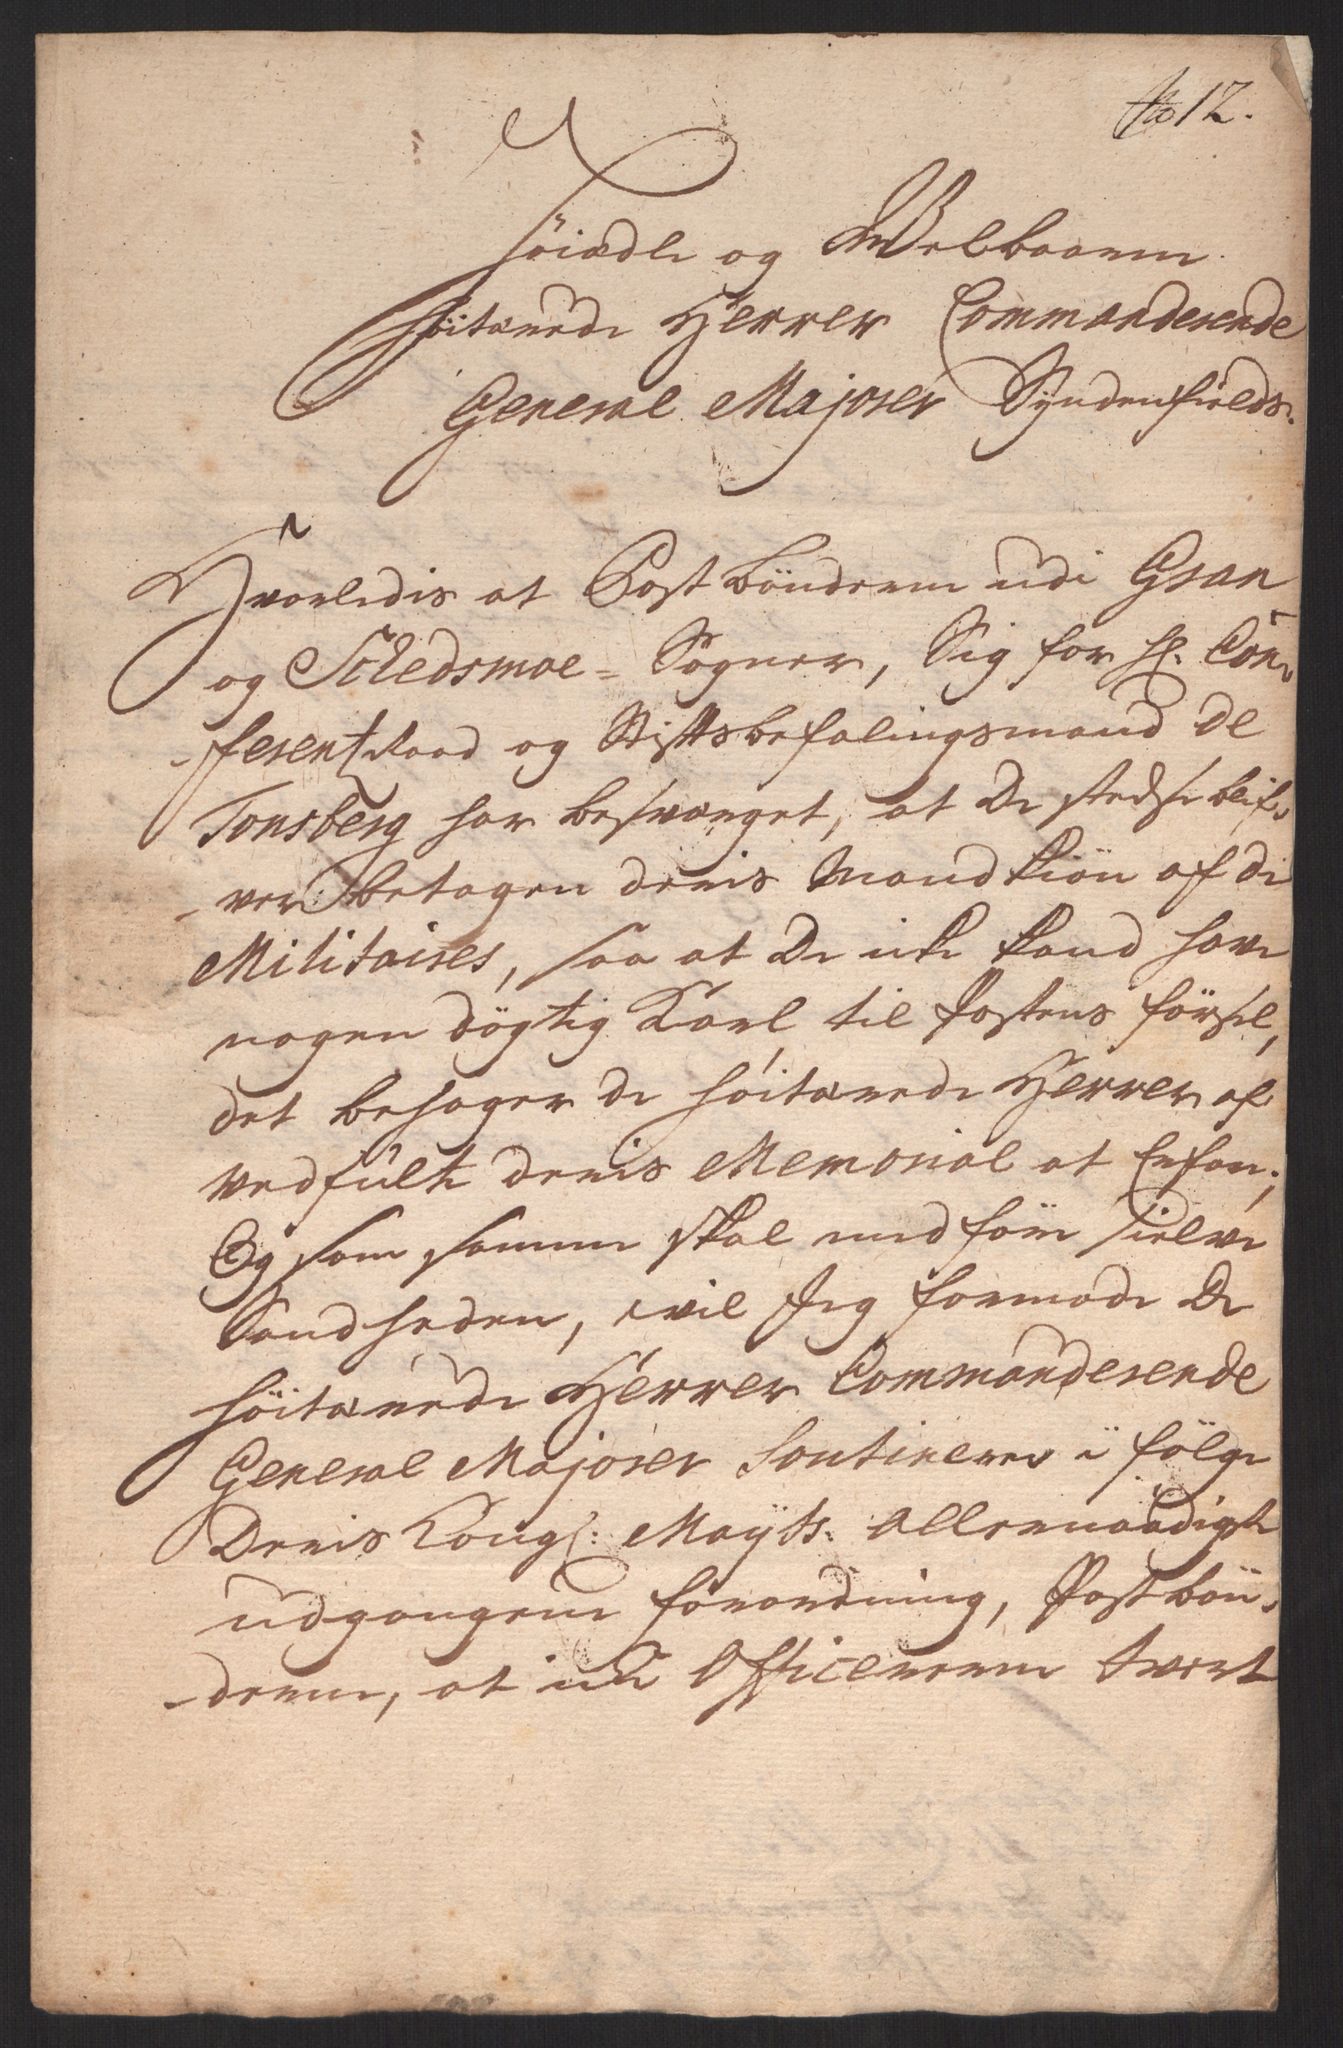 No 12.
Höiædle og Welbaarne
Höitærede Herrer Commanderende
General Majorer Syndenfields.
Hvorledis at Postbönderne udi Gran
og Schedsmoe= Sogner, Sig for H. Con-
-ferentzRaad og Stiftsbefalingsmand de
Tonsberg har besværget, at De stedse blif-
-ver betagen deris Mandkiön af de
Militaires, saa at De icke kand have
nogen dögtig Karl til Postens förssel,
det behager de höitærede Herrer af
vedfulte deris Memorial at Erfare;
Og som samme skal medföre sielve
Sandheden, vil Jeg formode De
höitærede Herrer Commanderende
General Majorer Soutinerer i fölge
Deris Kongl: Mayts. allernaadigste
udgangene forordning, Postbön-
-derne, at ei Officererne tvert